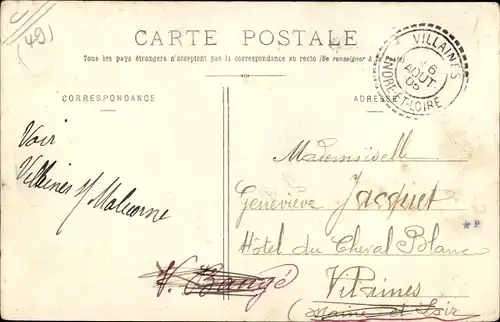 (49)
CARTE POSTALE
Tous les pays étrangers n'acceptent pas la correspondance au recto (Se renseigner à la Poste)
CORRESPONDANCE
ADRESSE
VILLAINES
6
AOUT
05
INDRE-ET-LOIRE
Voir
Villaines s/ Malicorne
Mademoiselle
Geneviève Jacquet
Hôtel du Cheval Blanc
V. Baugé
Vilaines
(Maine et Loir